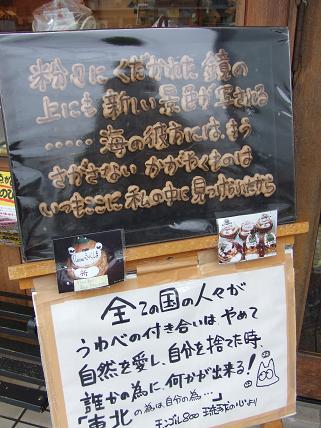 粉々にくだかれた鏡の
上にも新しい景色が写される
……海の彼方には、もう
さがさない かがやくものは
いつもここに 私の中に見つけたから
全ての国の人々が
うわべの付き合いは、やめて
自然を愛し、自分を捨てた時、
誰かの為に、何かが出来る!
「東北の為は自分の為…」
モンゴル800 琉球の心より